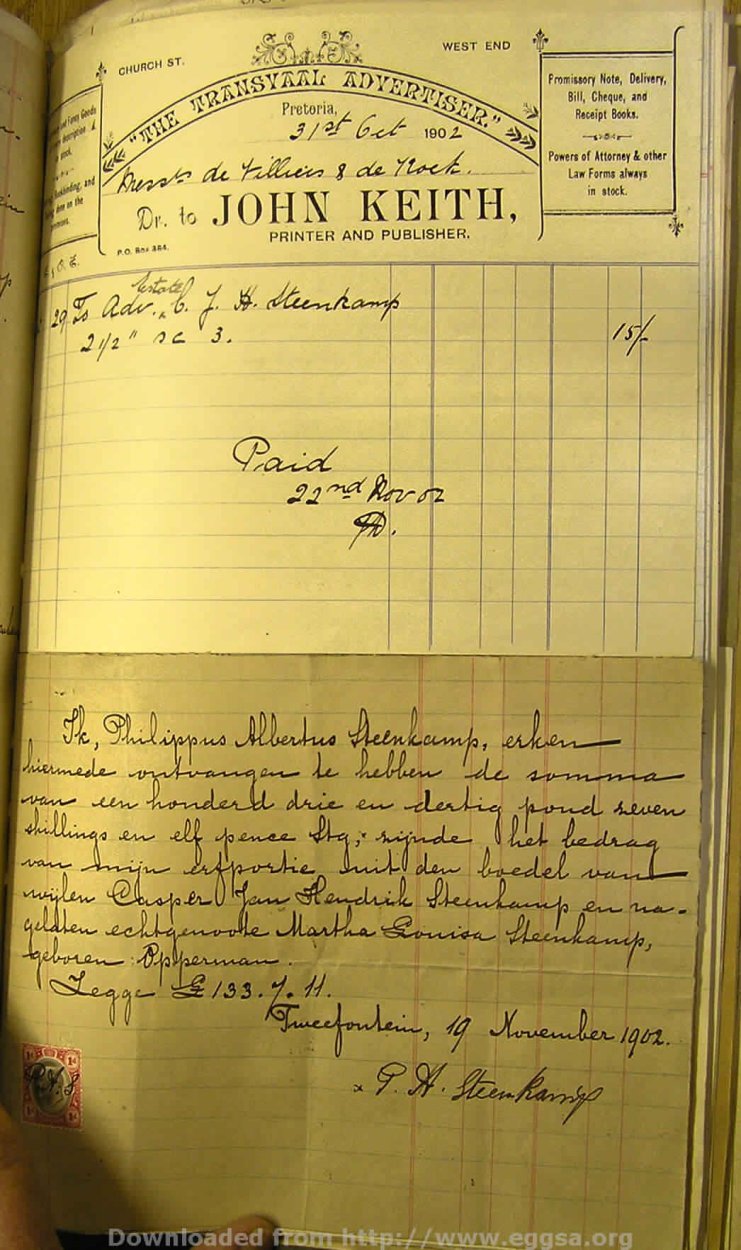 CHURCH ST.
WEST END
"THE TRANSVAAL ADVERTISER."
Pretoria,
31st Oct 1902
Messrs de Villiers & de Kock.
Dr. to JOHN KEITH,
PRINTER AND PUBLISHER.
P.O. Box 384.
Promissory Note, Delivery,
Bill, Cheque, and
Receipt Books.
Powers of Attorney & other
Law Forms always
in stock.
and Fancy Goods
description &
stock.
Bookbinding, and
done on the
29 To Adv. Estate C. J. H. Steenkamp
2 1/2" sc 3. 15/-
Paid
22nd Nov 02
Ik, Philippus Albertus Steenkamp, erken
hiermede ontvangen te hebben de somma
van een honderd drie en dertig pond zeven
shillings en elf pence Stg, zijnde het bedrag
van mijn erfportie uit den boedel van
wijlen Casper Jan Hendrik Steenkamp en na-
gelaten echtgenoote Martha Louisa Steenkamp,
geboren Opperman.
Zegge £133.7.11.
Tweefontein, 19 November 1902.
x P. A. Steenkamp
P.A.S
Downloaded from http://www.eggsa.org